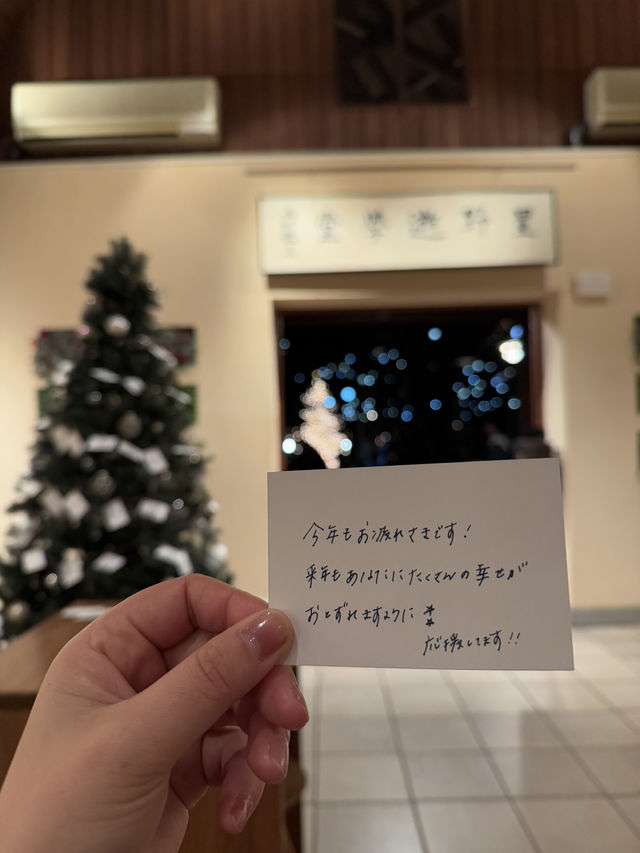 星野遊學堂
今年もお疲れさまです!
来年もあなたにたくさんの幸せが
おとずれますように
応援してます!!